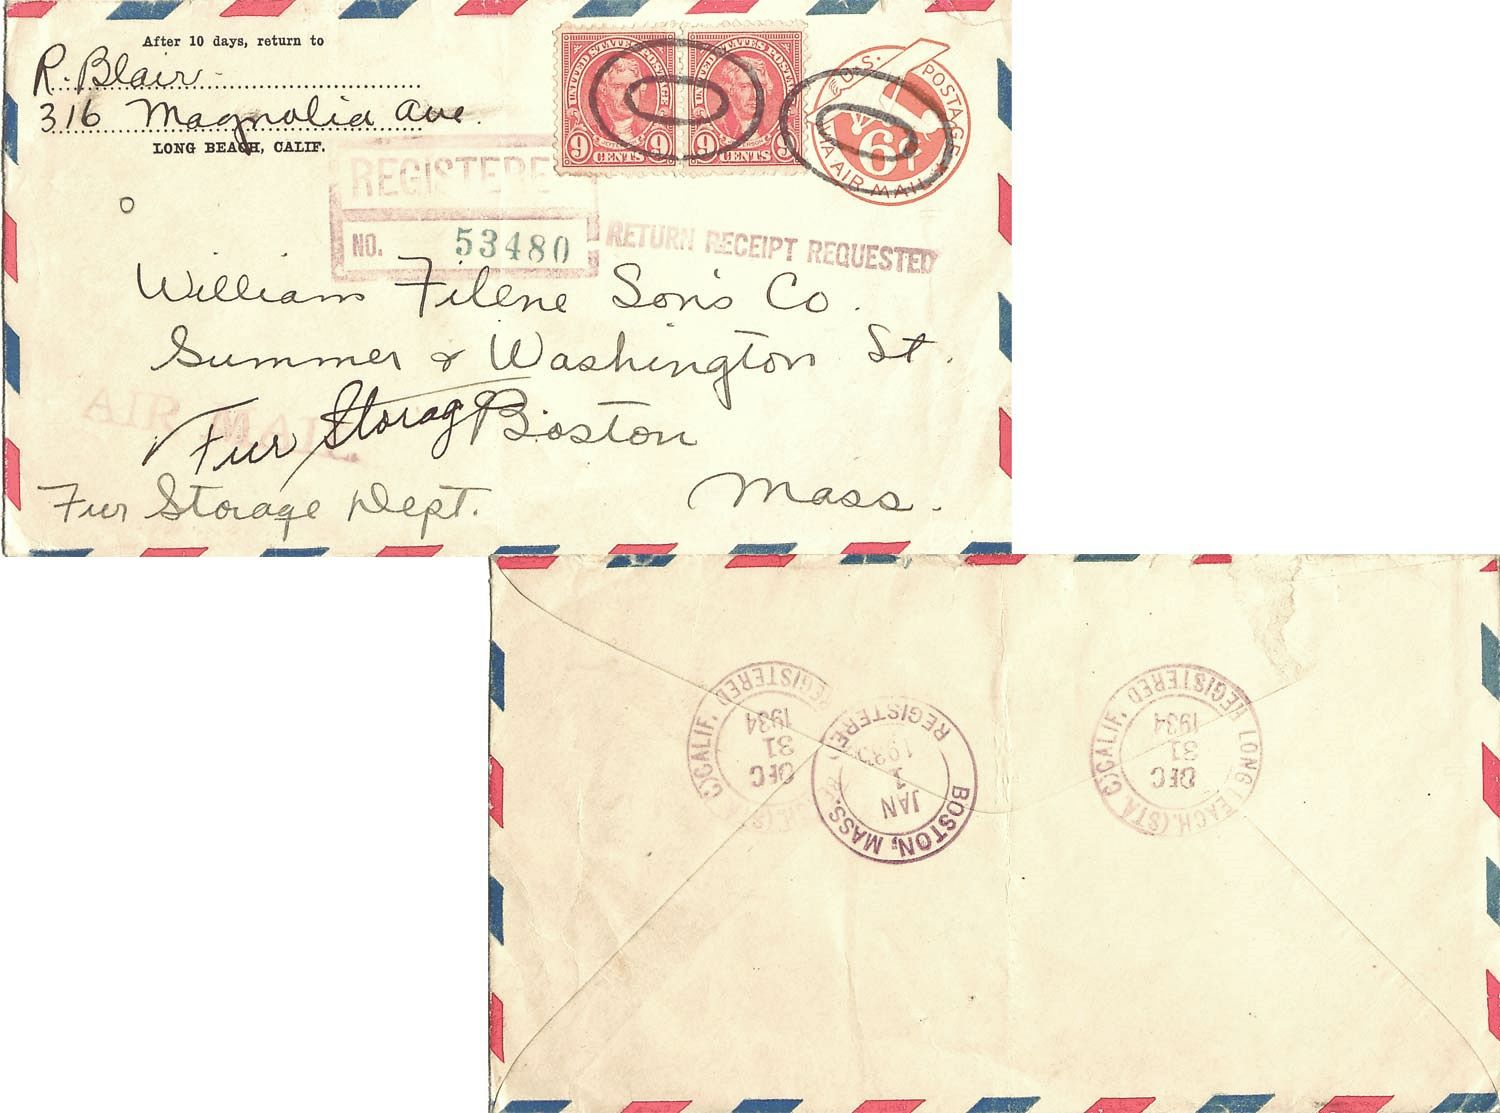 After 10 days, return to
R. Blair
316 Magnolia Ave.
LONG BEACH, CALIF.
UNITED STATES POSTAGE
9 CENTS 9
UNITED STATES POSTAGE
9 CENTS 9
U.S. POSTAGE
6¢
VIA AIR MAIL
REGISTERE
NO. 53480
RETURN RECEIPT REQUESTED
William Filene Son's Co.
Summer & Washington St.
AIR MAIL
Fur Storage Boston
Fur Storage Dept. Mass.
LONG BEACH, (STA. C) CALIF. REGISTERED
DEC
31
1934
BOSTON, MASS. REGISTERED
JAN
1
1935
LONG BEACH, (STA. C) CALIF. REGISTERED
DEC
31
1934